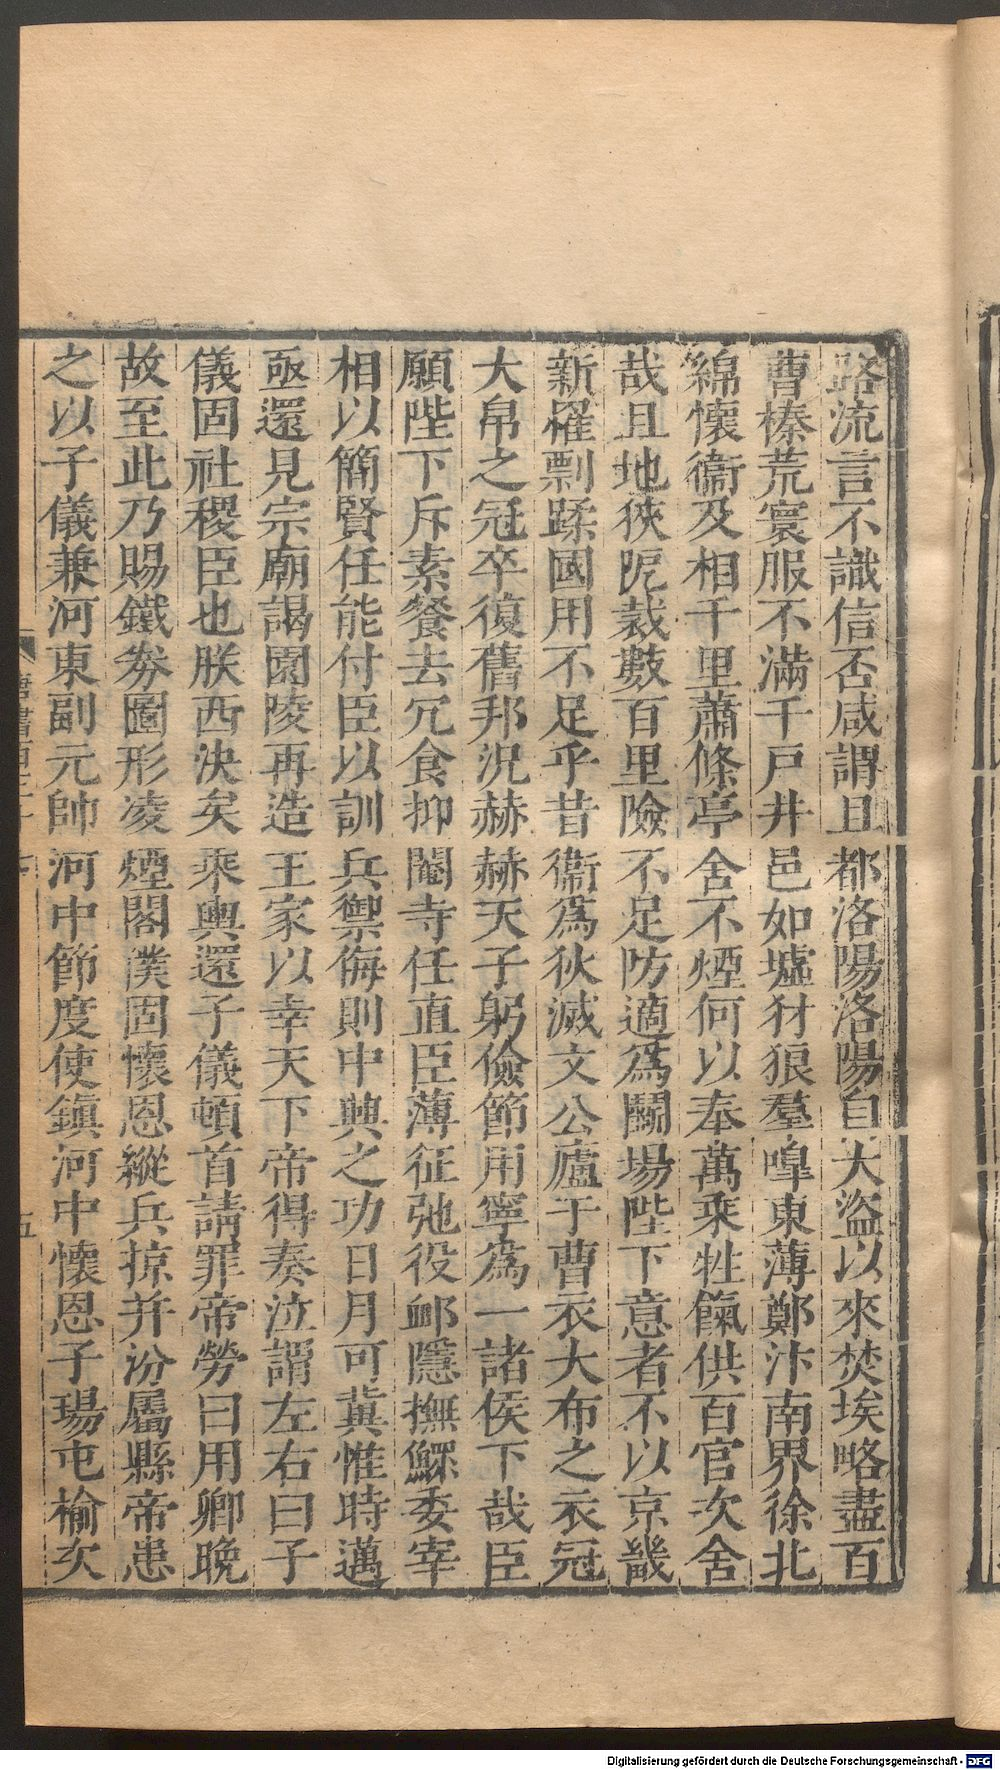 路流言不識信否咸謂且都洛陽洛陽自大盜以來焚埃略盡百
曹榛荒寰服不滿千戶井邑如墟犲狼羣嘷東薄鄭汴南界徐北
綿懷衞及相千里蕭條亭舍不煙何以奉萬乘牲餼供百官次舍
哉且地狹阨裁數百里險不足防適爲鬭場陛下意者不以京畿
新罹剽蹂國用不足乎昔衞爲狄滅文公廬于曹衣大布之衣冠
大帛之冠卒復舊邦況赫赫天子躬儉節用寧爲一諸侯下哉臣
願陛下斥素餐去冗食抑閹寺任直臣薄征弛役卹隱撫鰥委宰
相以簡賢任能付臣以訓兵禦侮則中興之功日月可冀惟時邁
亟還見宗廟謁園陵再造王家以幸天下帝得奏泣謂左右曰子
儀固社稷臣也朕西決矣乘輿還子儀頓首請罪帝勞曰用卿晚
故至此乃賜鐵券圖形凌煙閣僕固懷恩縱兵掠并汾屬縣帝患
之以子儀兼河東副元帥河中節度使鎮河中懷恩子瑒屯榆次
五
Digitalisierung gefördert durch die Deutsche Forschungsgemeinschaft - DFG